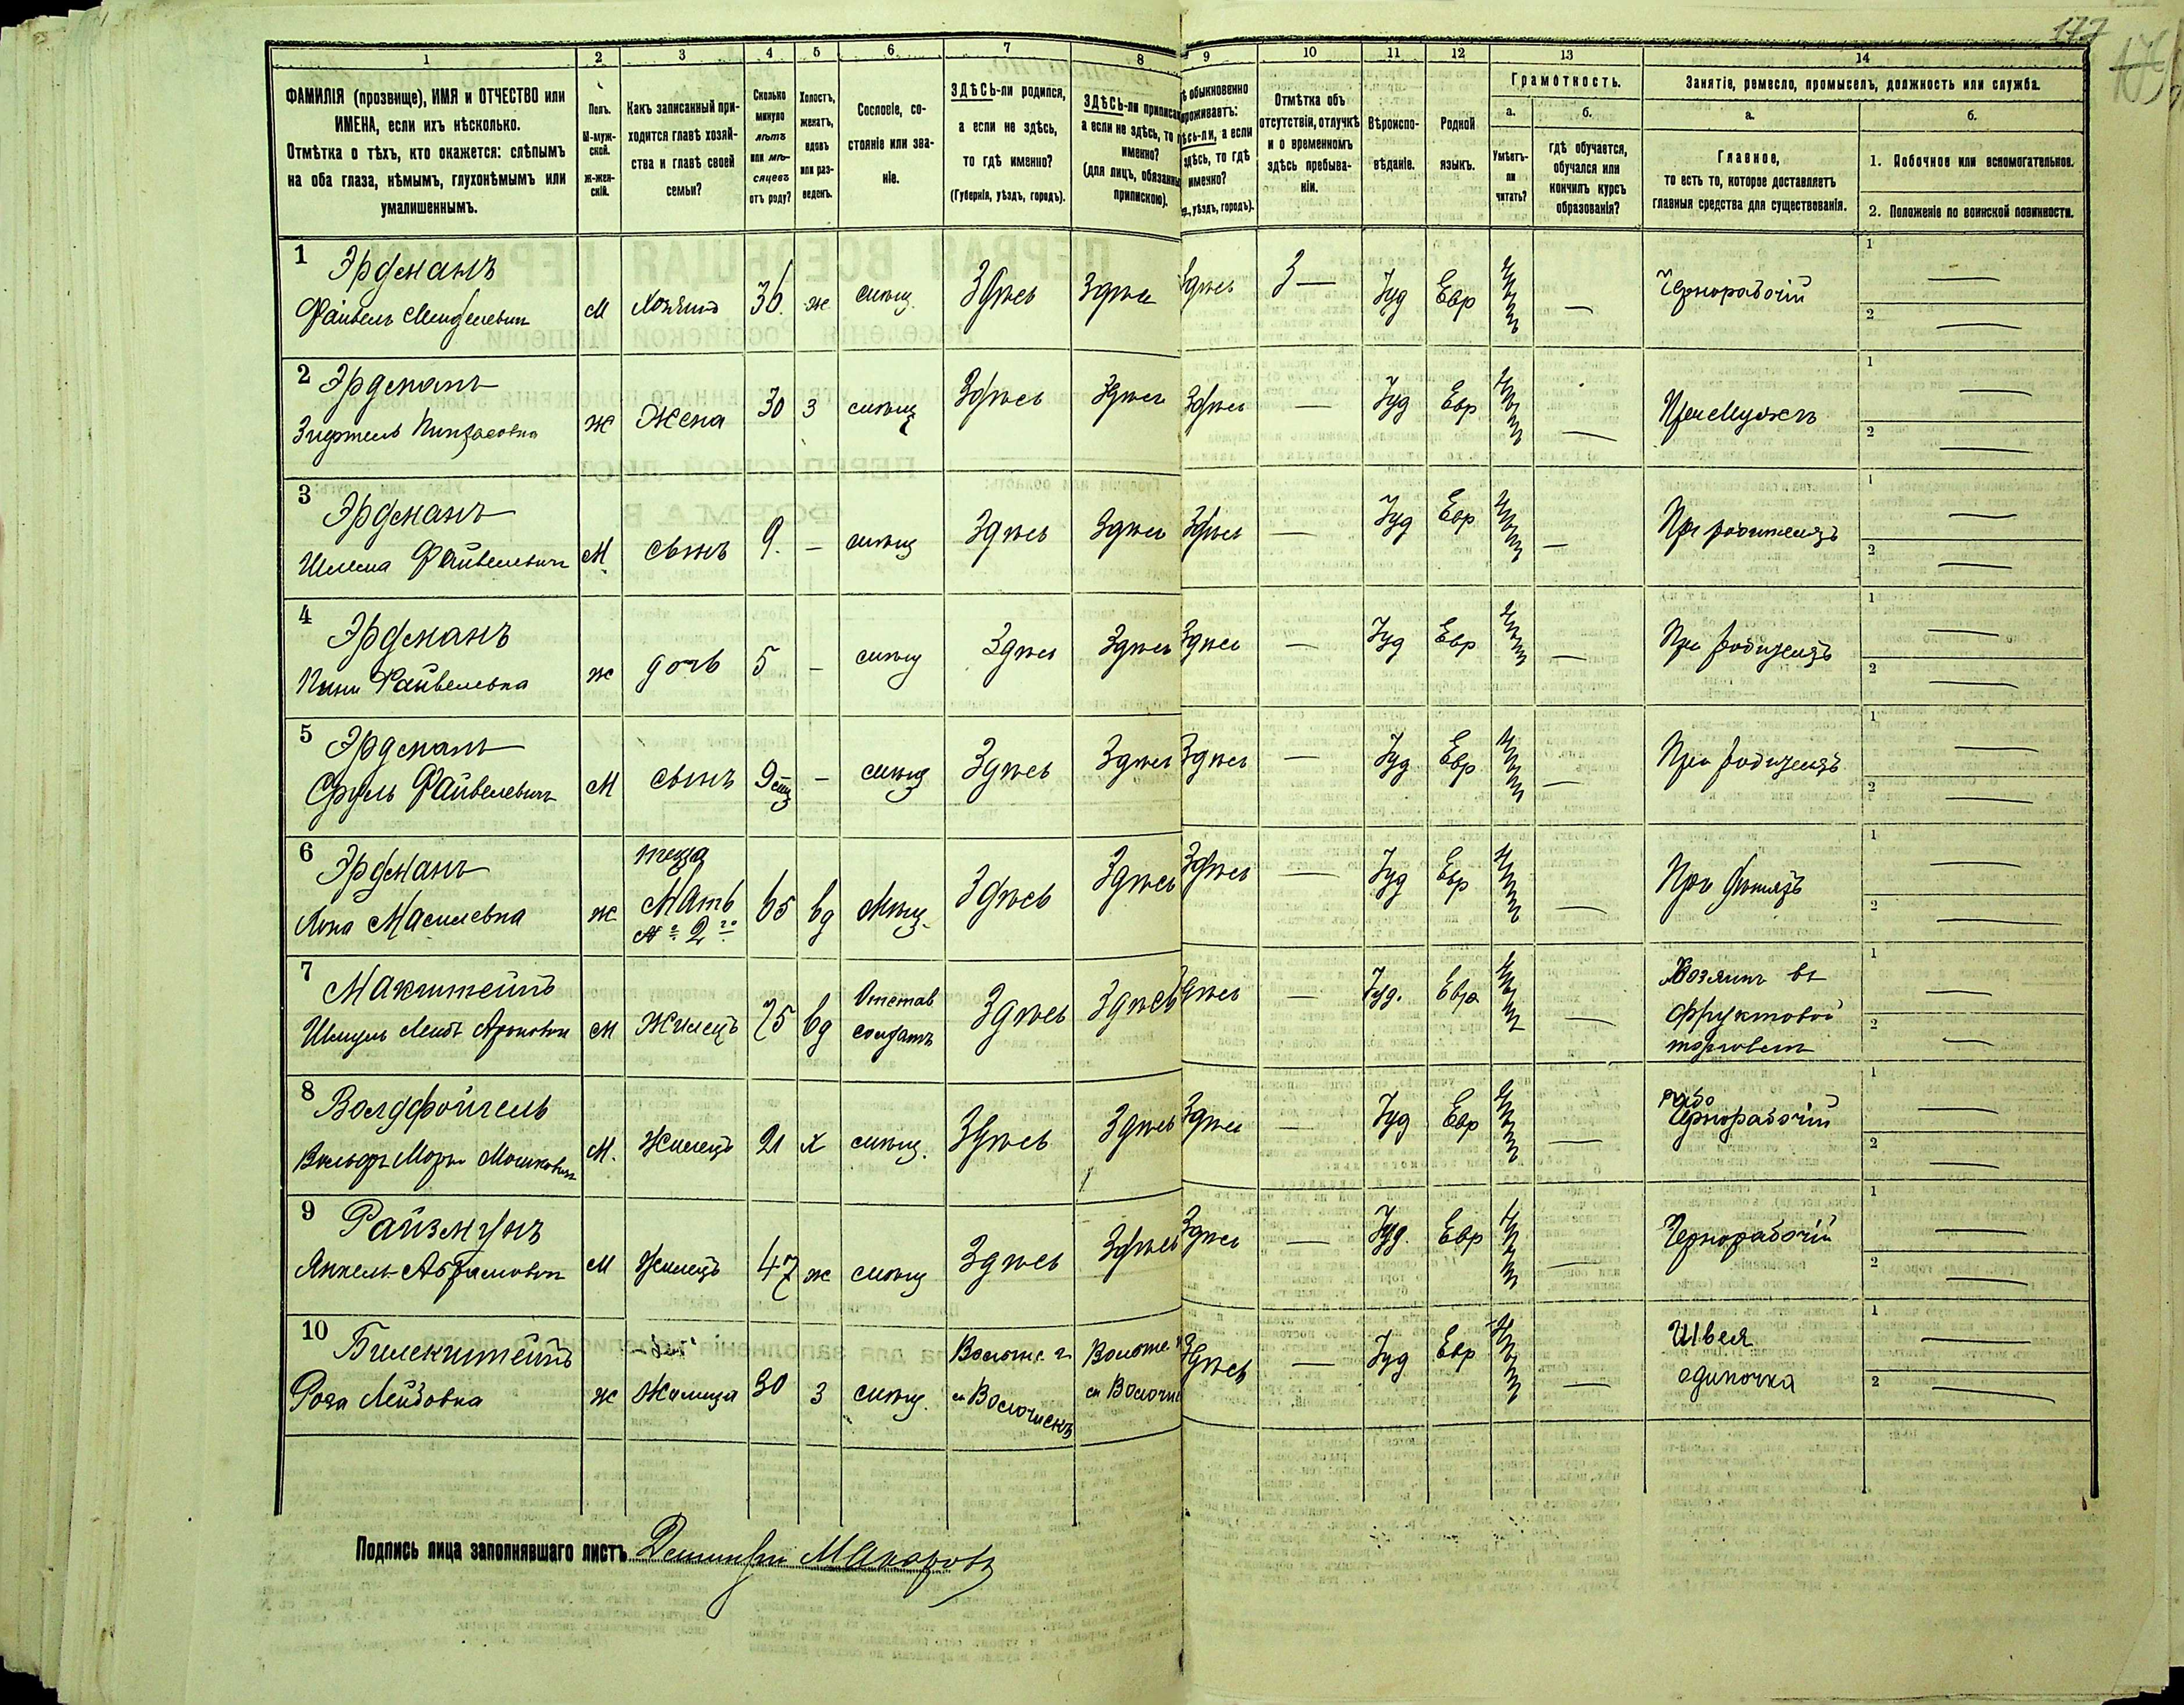 177
1 2 3 4 5 6 7 8 9 10 11 12 13 14
ФАМИЛІЯ (прозвище), ИМЯ и ОТЧЕСТВО или
ИМЕНА, если ихъ нѣсколько.
Отмѣтка о тѣхъ, кто окажется: слѣпымъ
на оба глаза, нѣмымъ, глухонѣмымъ или
умалишеннымъ.
Полъ.
М-муж-
ской.
Ж-жен-
скій.
Какъ записанный при-
ходится главѣ хозяй-
ства и главѣ своей
семьи?
Сколько
минуло
лѣтъ
или мѣ-
сяцевъ
отъ роду?
Холостъ,
женатъ,
вдовъ
или раз-
веденъ.
Сословіе, со-
стояніе или зва-
ніе.
ЗДѢСЬ-ли родился,
а если не здѣсь,
то гдѣ именно?
(Губернія, уѣздъ, городъ).
ЗДѢСЬ-ли приписа
а если не здѣсь, то г
именно?
(для лицъ, обязанны
припискою).
ѣ обыкновенно
проживаетъ:
ѣсь-ли, а если
здѣсь, то гдѣ
именно?
р., уѣздъ, городъ).
Отмѣтка объ
отсутствіи, отлучкѣ
и о временномъ
здѣсь пребыва-
ніи.
Вѣроиспо-
вѣданіе.
Родной
языкъ.
Грамотность.
а. б.
Умѣетъ-
ли
читать?
гдѣ обучается,
обучался или
кончилъ курсъ
образованія?
Занятіе, ремесло, промыселъ, должность или служба.
а. б.
Главное,
то есть то, которое доставляетъ
главныя средства для существованія.
1. Побочное или вспомогательное.
2. Положеніе по воинской повинности.
1 Эрдманъ
Файвель Менделевич М Хозяинъ 36. ж мѣщ. Здѣсь Здѣсь Здѣсь З — Іуд Евр — Чернорабочій 1 — 2 —
2 Эрдманъ
Ж Жена 30 З мѣщ Здѣсь Здѣсь Здѣсь — Іуд Евр — При Мужѣ 1 — 2 —
3 Эрдманъ
Шлема Файвелевич М сынъ 9. — мѣщ Здѣсь Здѣсь Здѣсь — Іуд Евр — При родителяхъ 1 — 2 —
4 Эрдманъ
Файвелевна ж дочь 5 — мѣщ Здѣсь Здѣсь Здѣсь — Іуд Евр — При родителяхъ 1 — 2 —
5 Эрдманъ
Сруль Файвелевич М сынъ 9 мѣсц — мѣщ Здѣсь Здѣсь Здѣсь — Іуд Евр — При родителяхъ 1 — 2 —
6 Эрдманъ
ж теща
Мать
№ 2го 65 вд мѣщ. Здѣсь Здѣсь Здѣсь — Іуд Евр — При дѣтяхъ 1 — 2 —
7 Макштейнъ
Шмуль Лейбъ Ароновичъ М Жилецъ 75 вд Отстав
солдатъ Здѣсь Здѣсь Здѣсь — Іуд. Евр — Хозяинъ въ
фруктовой
торговлѣ 1 — 2 —
8 Волдфойгель
Мошковичъ М. Жилецъ 21 х мѣщ. Здѣсь Здѣсь Здѣсь — Іуд Евр — Чернорабочій 1 — 2 —
9 Райзмунъ
Янкель Абрамович М Жилецъ 47 ж мѣщ Здѣсь Здѣсь Здѣсь — Іуд. Евр — Чернорабочій 1 — 2 —
10
Роза Лейбовна ж Жилица 30 З мѣщ. Волочискъ Здѣсь — Іуд Евр — Швея
одиночка 1 — 2 —
Подпись лица заполнявшаго листъ Дмитрій Макаровъ